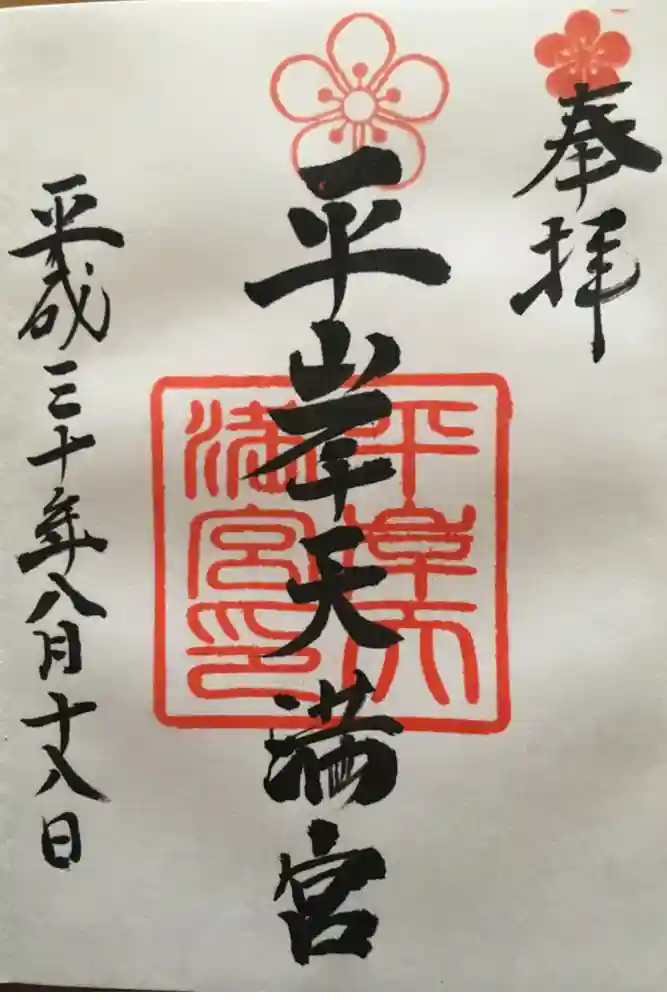 奉拝
平岸天満宮
平岸天
満宮印
平成三十年八月十八日